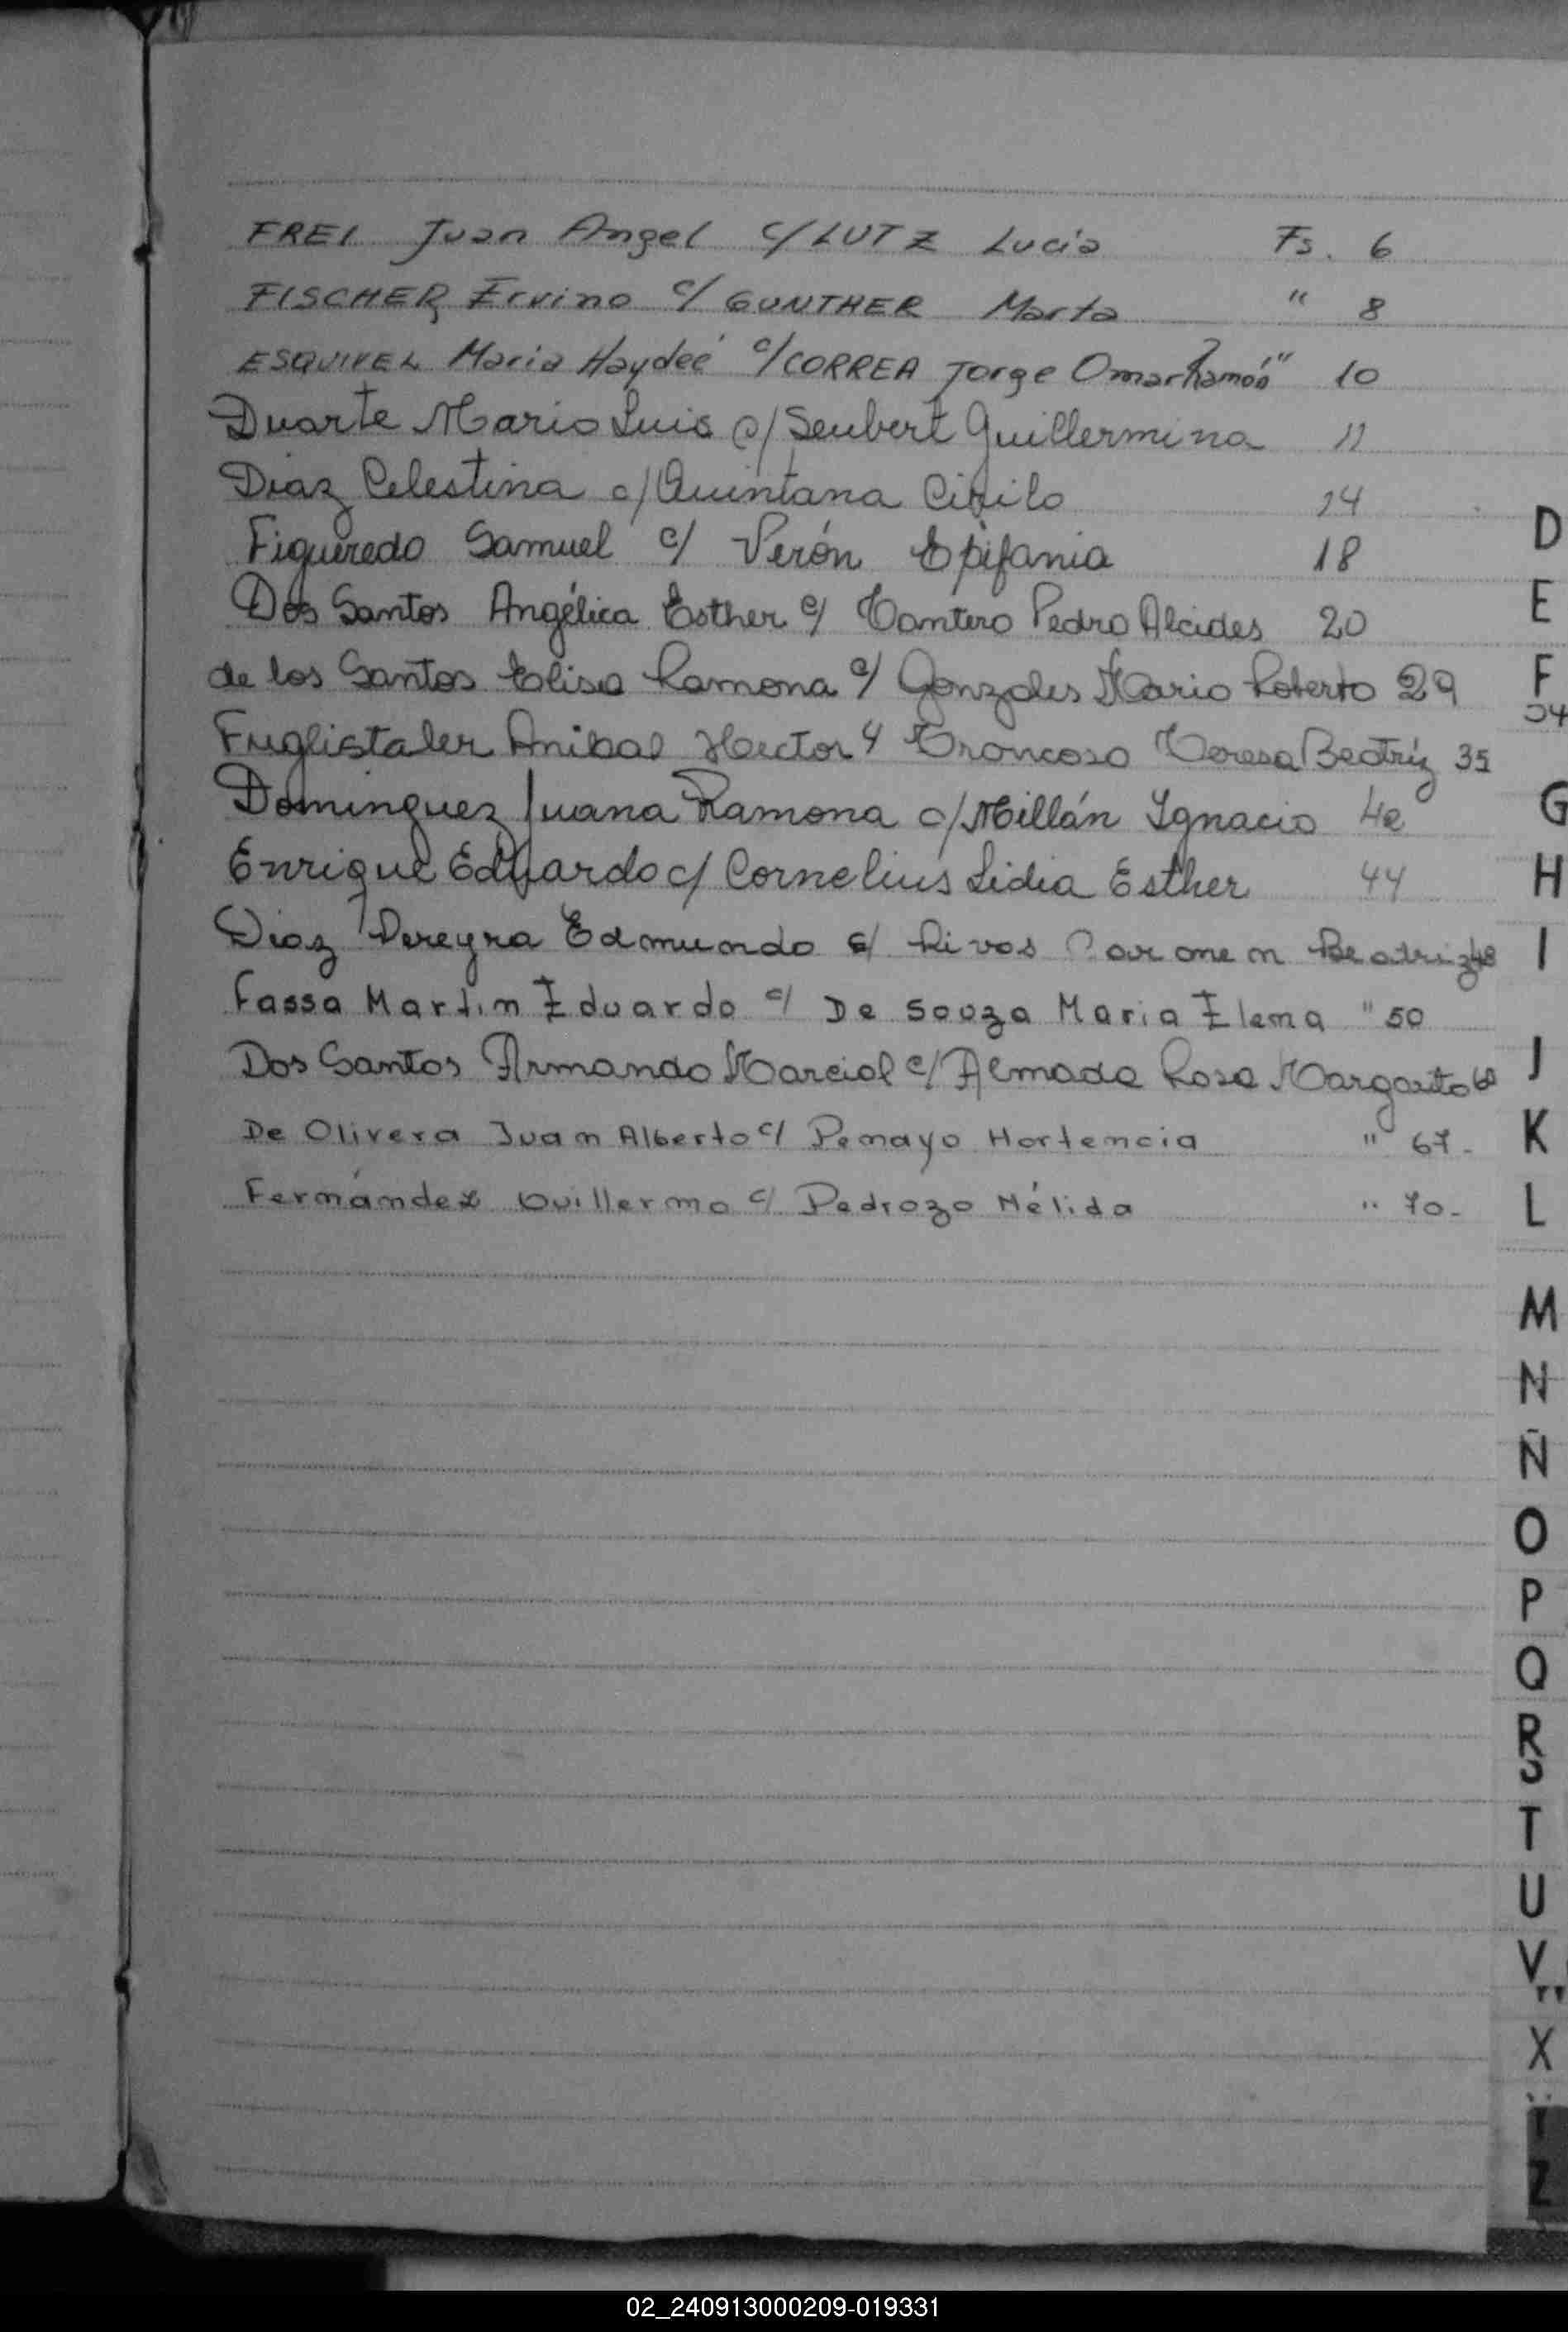 FREI Juan Angel c/ LUTZ Lucia Fs. 6
FISCHER, Ervino c/ GUNTHER Marta " 8
ESQUIVEL Maria Haydeé c/ CORREA Jorge Omar Ramón " 10
Duarte Mario Luis c/ Seubert Guillermina 11
Diaz Celestina c/ Quintana Cirilo 14
Figueredo Samuel c/ Verón Epifania 18
Dos Santos Angélica Esther c/ Tantero Pedro Alcides 20
de los Santos Elisa Ramona c/ Gonzales Mario Roberto 29
Fuglistaler Anibal Hector y Troncoso Teresa Beatríz 35
Dominguez Juana Ramona c/ Millán Ignacio 42
Enrique Eduardo c/ Cornelius Lidia Esther 44
Diaz Pereyra Edmundo c/ Rivas Carmen Beatriz 48
Fassa Martin Eduardo c/ De Souza Maria Elena " 50
Dos Santos Armando Marcial c/ Almada Rosa Margarita
De Olivera Juan Alberto c/ Penayo Hortencia " 67-
Fernández Guillermo c/ Pedrozo Nélida " 70-
D
E
F
G
H
I
J
K
L
M
N
Ñ
O
P
Q
R
T
U
V
X
Z
02_240913000209-019331